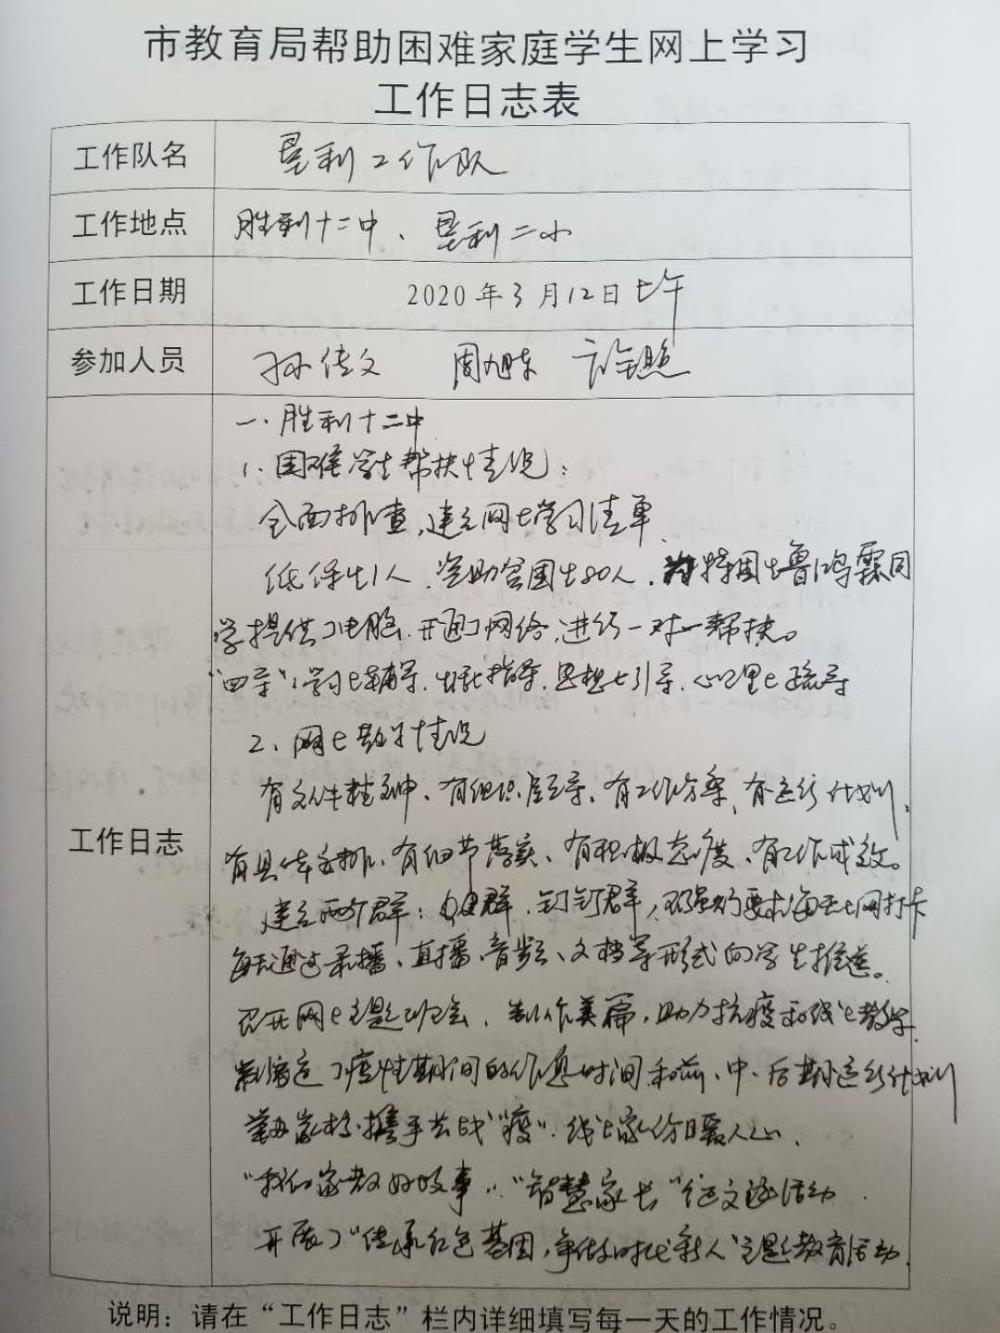 市教育局帮助困难家庭学生网上学习
工作日志表
工作队名 垦利工作队
工作地点 胜利十二中、垦利二小
工作日期 2020年3月12日上午
参加人员 孙传文 周旭东
工作日志
一、胜利十二中
1、困难学生帮扶情况：
全面排查，建立网上学习清单
低保生1人，资助贫困生80人，为特困生鲁鸿霖同
学提供了电脑，开通了网络，进行一对一帮扶。
“四导”：学习上辅导，生活指导，思想上引导，心理上疏导
2、网上教学情况
有文件精神、有组织领导、有工作方案、有运行计划、
有具体安排、有细节落实、有积极态度、有工作成效。
建立两个群：QQ群、钉钉群，要求每天上网打卡
每天通过录播、直播、音频、文档等形式向学生推送。
召开网上主题班会，制作美篇，助力抗疫和线上教学
制定了疫情期间的作息时间和前、中、后期运行计划
家校携手共战“疫”，线上家访暖人心、
“我们家教好故事”、“智慧家长”征文活动
开展了“传承红色基因，争做时代新人”主题教育活动
说明：请在“工作日志”栏内详细填写每一天的工作情况。